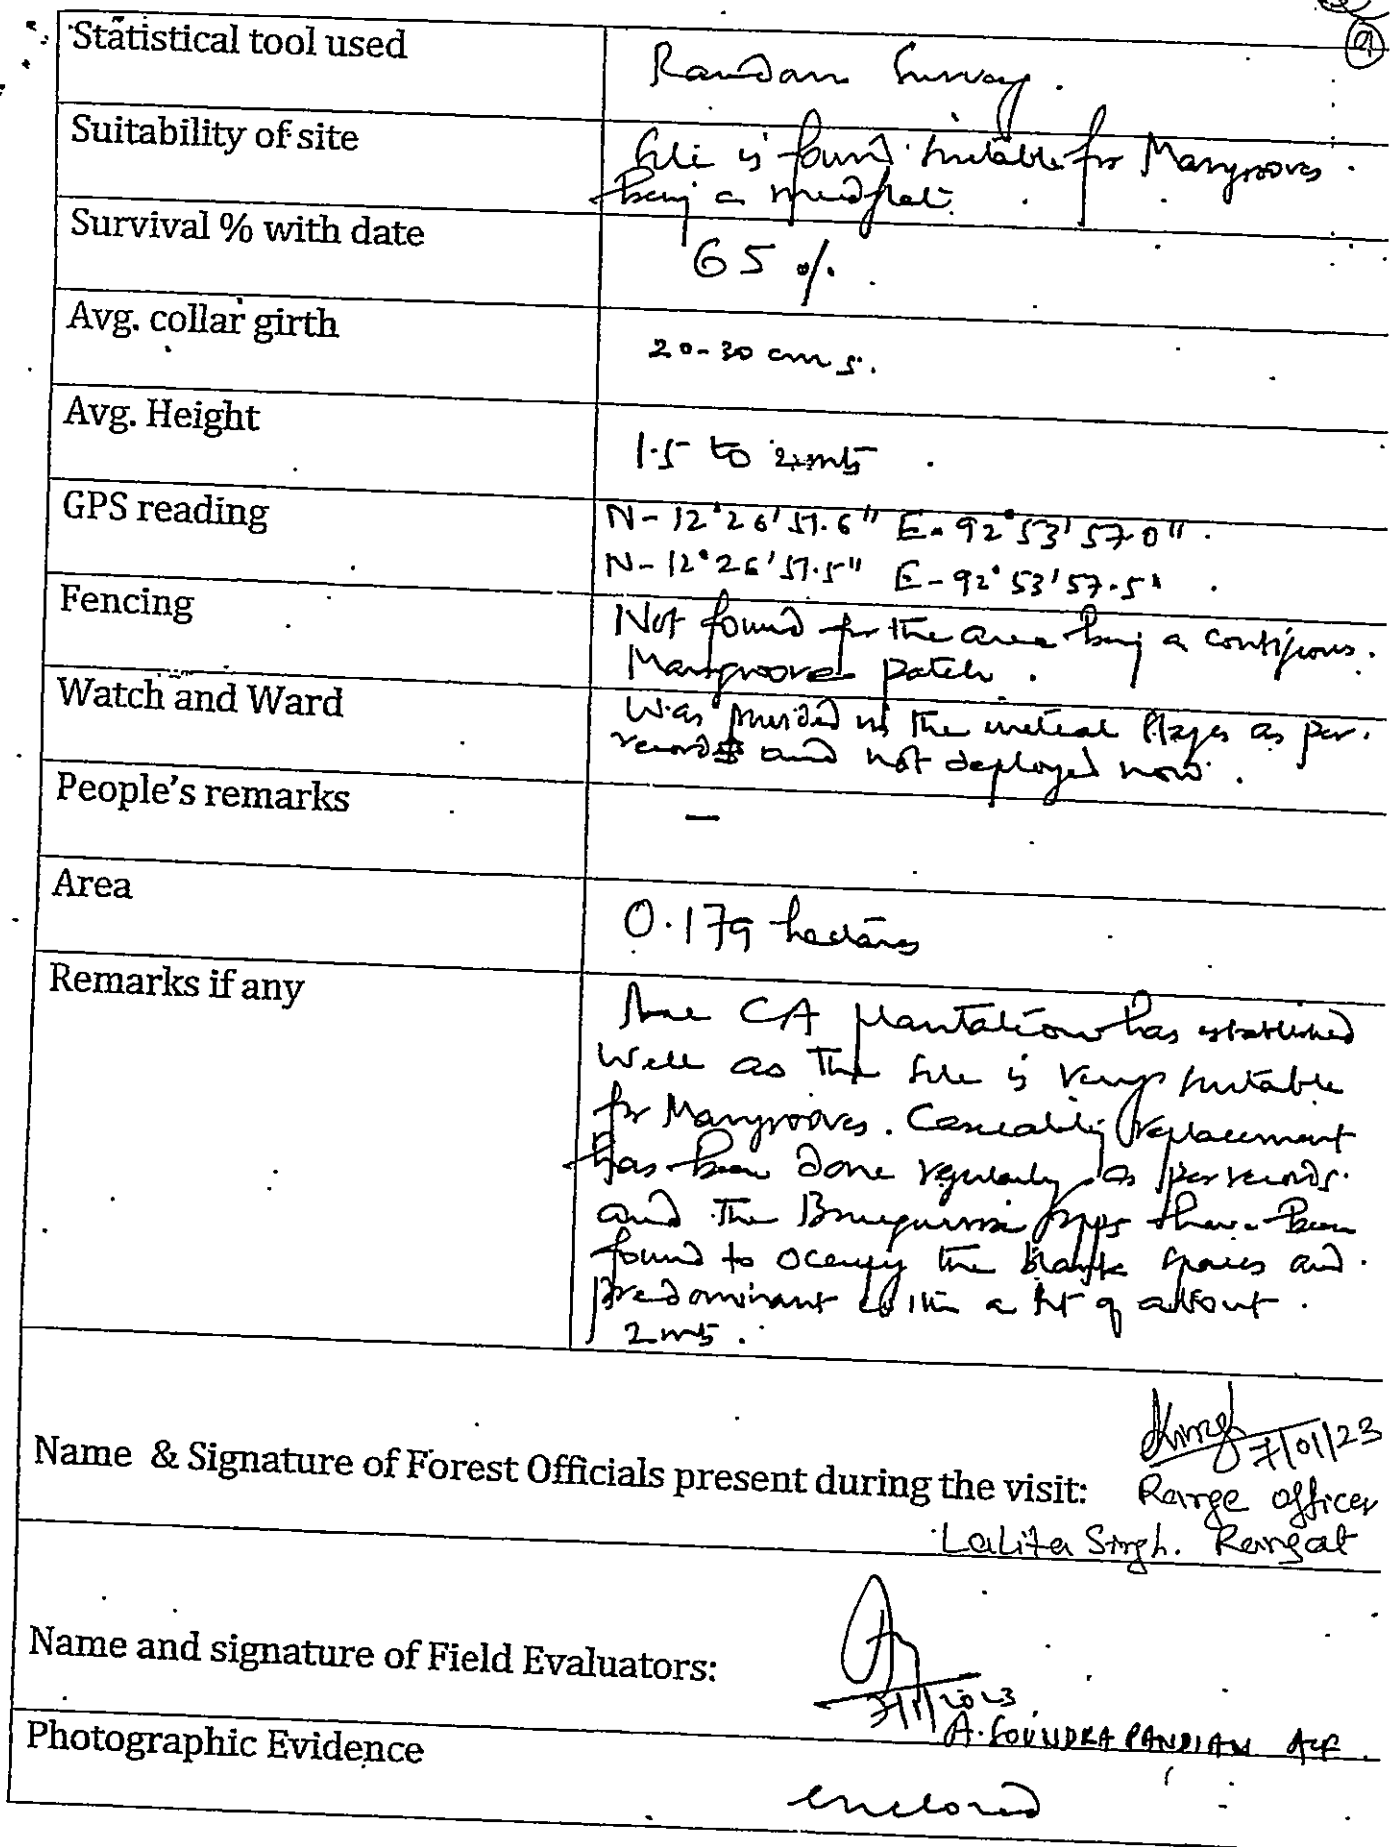 9
Statistical tool used
Random Survey.
Suitability of site
Site is found suitable for Mangroves
being a mudflat.
Survival % with date
65 %.
Avg. collar girth
20-30 cms.
Avg. Height
1.5 to 2 mts
GPS reading
N-12°26'57.6" E-92°53'57.0".
N-12°26'57.5" E-92°53'57.5"
Fencing
Not found for the area being a contigious
Mangroove patch.
Watch and Ward
Was provided in the initial stages as per
records and not deployed now.
People's remarks
-
Area
0.179 hectares
Remarks if any
CA plantation has established
well as the site is very suitable
for Mangrooves. Casuality replacement
has been done regularly as per records.
and the Bruguiera spps have been
found to occupy the blank spaces and
predominant with a ht of about
2 mts.
7/01/23
Name & Signature of Forest Officials present during the visit: Range officer
Lalita Singh. Rangat
Name and signature of Field Evaluators:
7/1/2023
A. SOUNDRA PANDIAN ACF
Photographic Evidence
enclosed